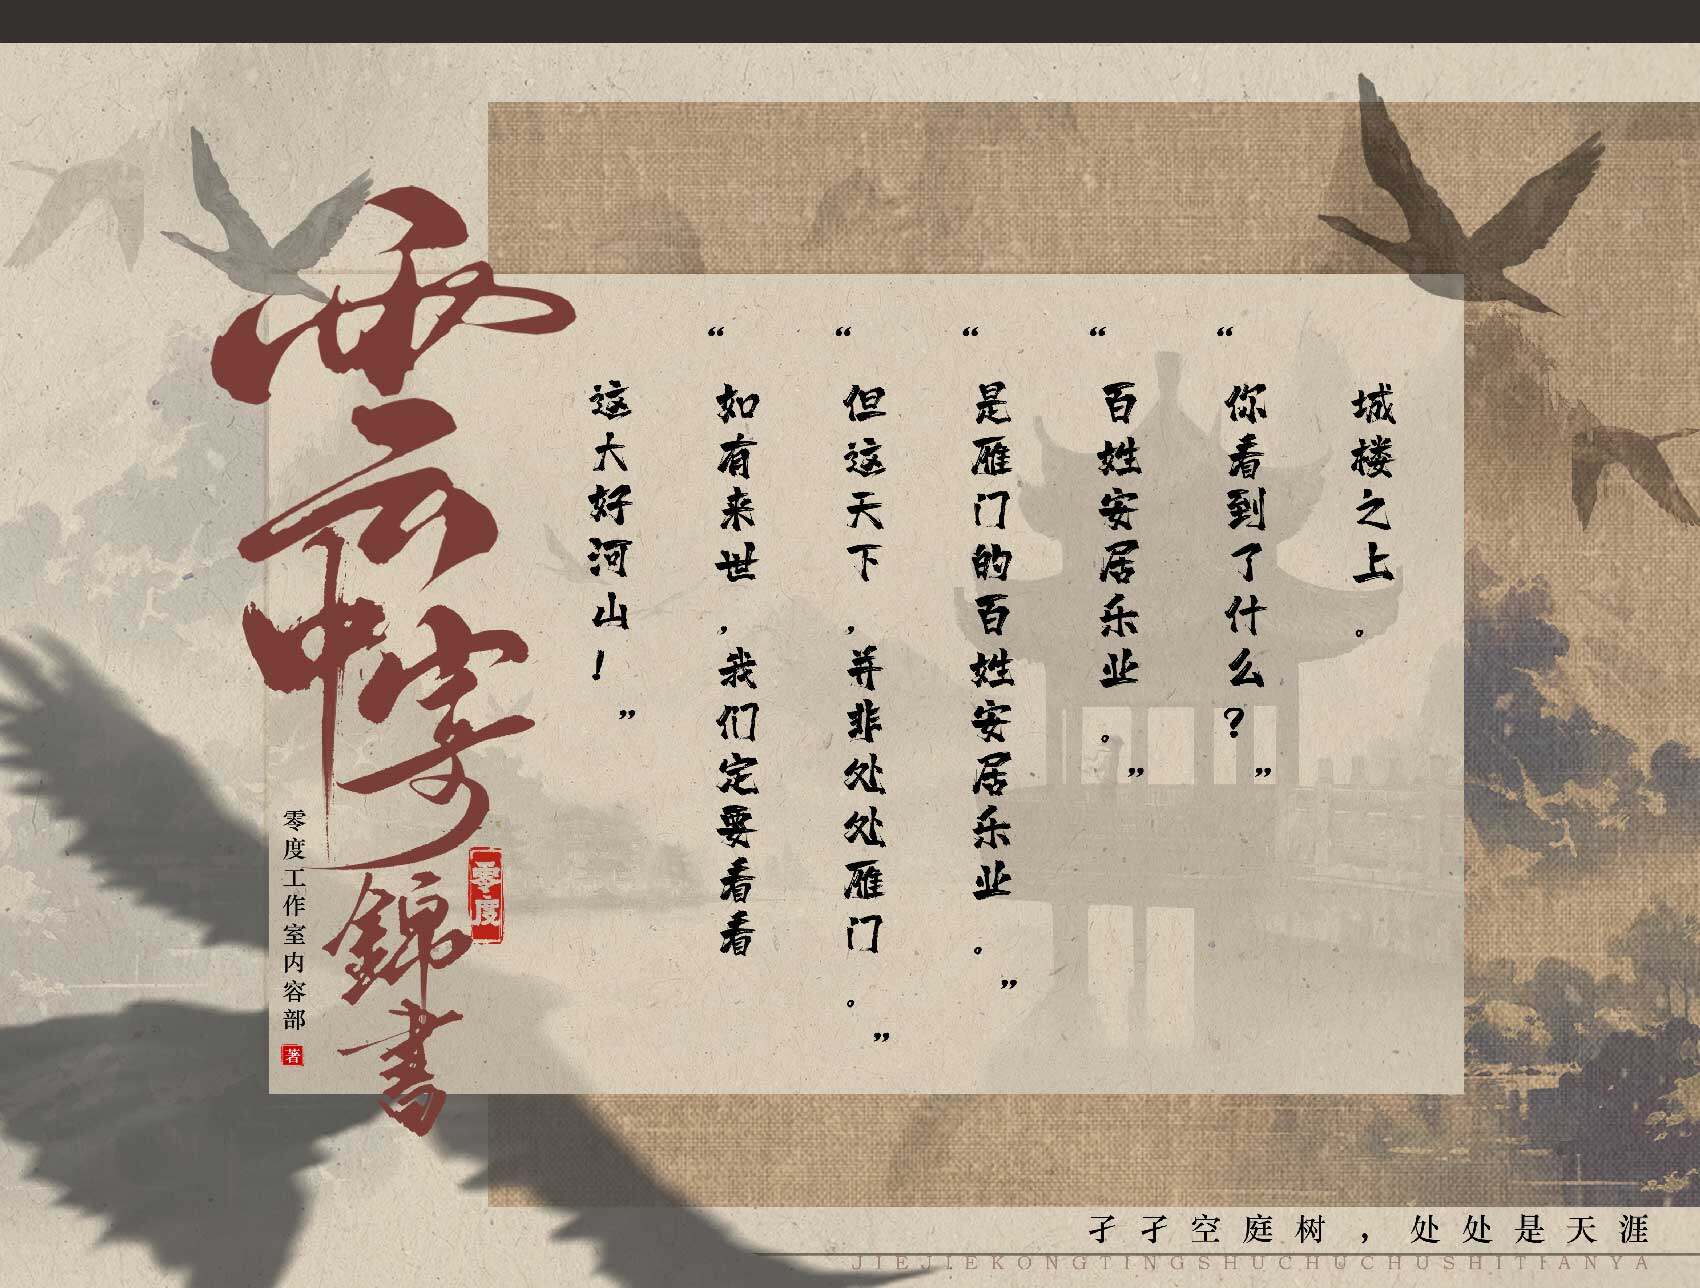 城楼之上。
“你看到了什么？”
“百姓安居乐业。”
“是雁门的百姓安居乐业。”
“但这天下，并非处处雁门。”
“如有来世，我们定要看看
这大好河山！”
雲中寄
錦書
零度
零度工作室内容部
著
孑孑空庭树，处处是天涯
JIEJIEKONGTINGSHUCHUCHUSHITIANYA